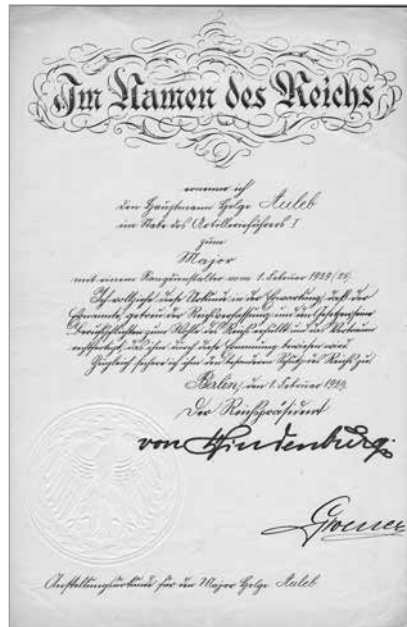 Im Namen des Reichs
ernenne ich
den Hauptmann Helge Auleb
im Stabe des Artillerieführers I
zum
Major
mit einem Rangdienstalter vom 1. Februar 1929
Ich vollziehe diese Urkunde in der Erwartung, daß der
Ernannte getreu der Reichsverfassung und den Gesetzen seine
Berufspflichten zum Wohle des Reichs erfüllt und das Vertrauen
rechtfertigt, das ihm durch diese Ernennung bewiesen wird.
Zugleich sichere ich ihm den besonderen Schutz des Reichs zu.
Berlin, den 1. Februar 1929.
Der Reichspräsident
von Hindenburg
Groener
Anstellungsurkunde für den Major Helge Auleb